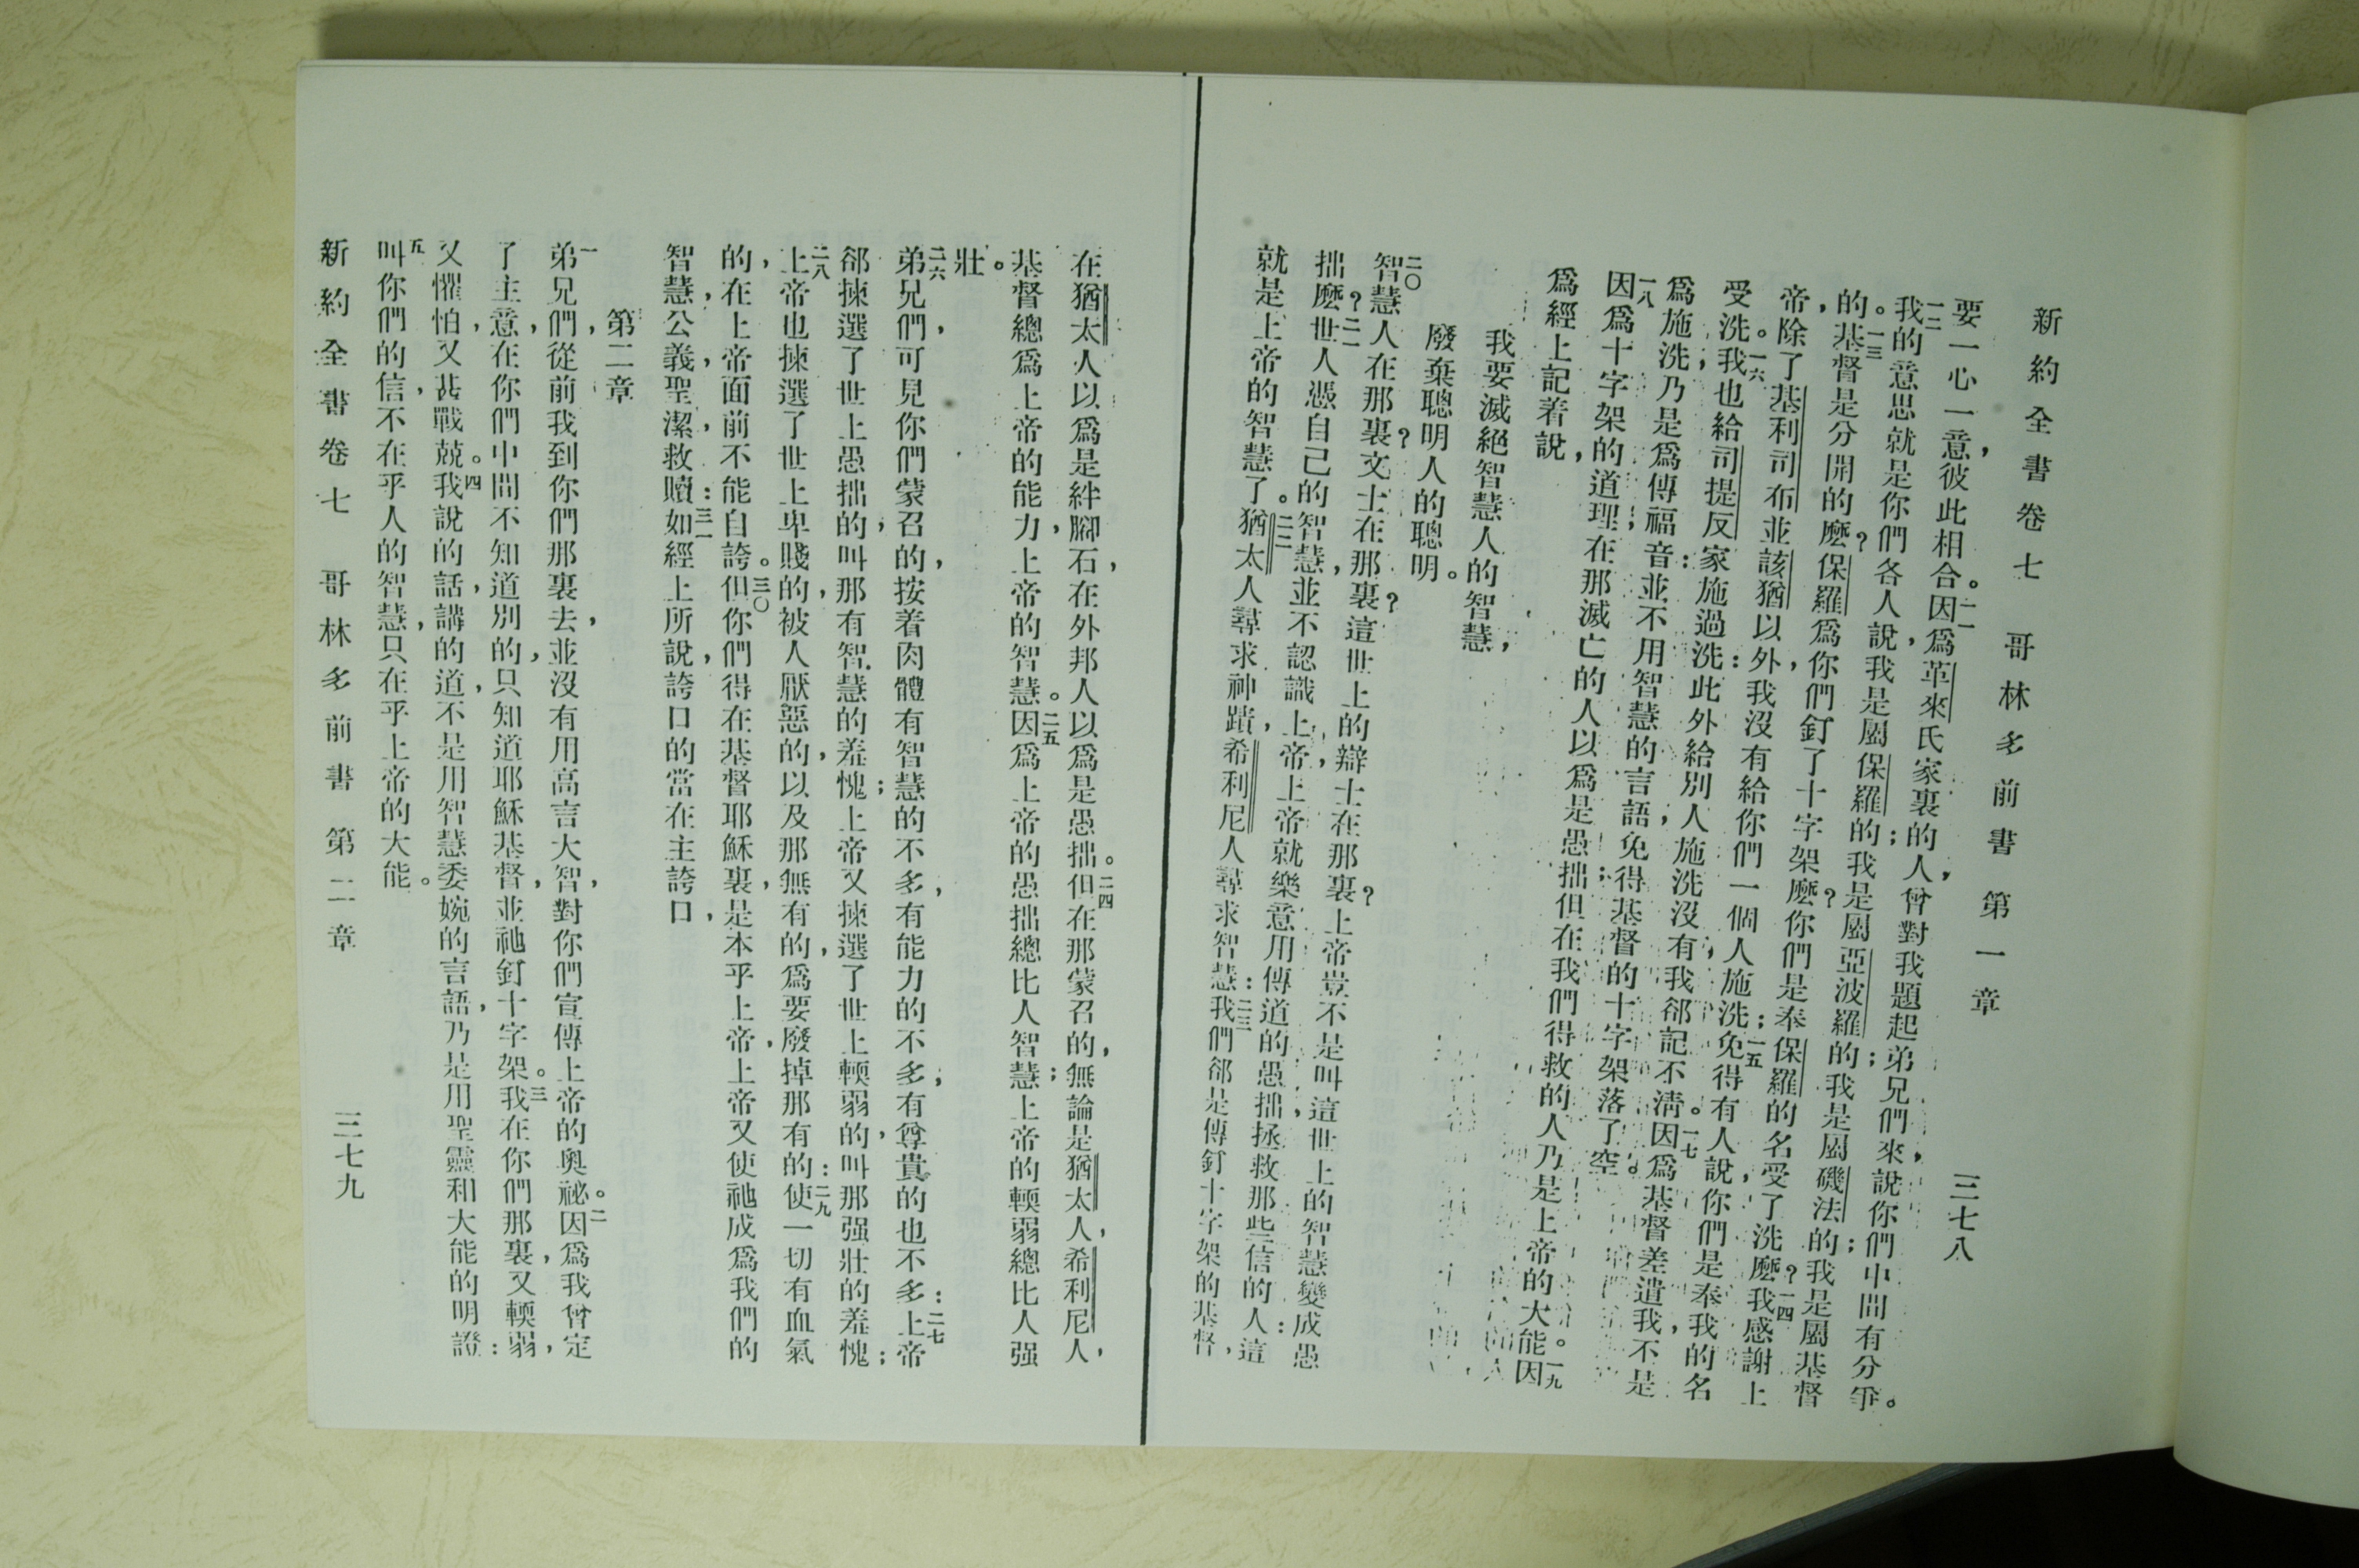 新約全書卷七　哥林多前書　第一章　三七八
要一心一意，彼此相合。一一因爲革來氏家裏的人，曾對我題起弟兄們來，說你們中間有分爭。
一二我的意思就是你們各人說，我是屬保羅的；我是屬亞波羅的；我是屬磯法的；我是屬基督
的。一三基督是分開的麼？保羅爲你們釘了十字架麼？你們是奉保羅的名受了洗麼？一四我感謝上
帝，除了基利司布並該猶以外，我沒有給你們一個人施洗；一五免得有人說，你們是奉我的名
受洗。一六我也給司提反家施過洗：此外給別人施洗沒有，我郤記不淸。一七因爲基督差遣我，不是
爲施洗，乃是爲傳福音：並不用智慧的言語，免得基督的十字架落了空。
一八因爲十字架的道理，在那滅亡的人以爲是愚拙；但在我們得救的人乃是上帝的大能。一九因
爲經上記着說，
我要滅絕智慧人的智慧，
廢棄聰明人的聰明。
二〇智慧人在那裏？文士在那裏？這世上的辯士在那裏？上帝豈不是叫這世上的智慧變成愚
拙麼？二一世人憑自己的智慧，並不認識上帝，上帝就樂意用傳道的愚拙，拯救那些信的人：這
就是上帝的智慧了。二二猶太人尋求神蹟，希利尼人尋求智慧：二三我們郤是傳釘十字架的基督，
在猶太人以爲是絆腳石，在外邦人以爲是愚拙。二四但在那蒙召的，無論是猶太人，希利尼人，
基督總爲上帝的能力，上帝的智慧。二五因爲上帝的愚拙總比人智慧；上帝的輭弱總比人强
壯。
二六弟兄們，可見你們蒙召的，按着肉體有智慧的不多，有能力的不多，有尊貴的也不多：二七上帝
郤揀選了世上愚拙的，叫那有智慧的羞愧；上帝又揀選了世上輭弱的，叫那强壯的羞愧；
二八上帝也揀選了世上卑賤的，被人厭惡的，以及那無有的，爲要廢掉那有的：二九使一切有血氣
的，在上帝面前不能自誇。三〇但你們得在基督耶穌裏，是本乎上帝，上帝又使祂成爲我們的
智慧，公義，聖潔，救贖：三一如經上所說，誇口的當在主誇口，
第二章
一弟兄們，從前我到你們那裏去，並沒有用高言大智，對你們宣傳上帝的奧祕。二因爲我曾定
了主意，在你們中間不知道別的，只知道耶穌基督，並祂釘十字架。三我在你們那裏，又輭弱，
又懼怕，又甚戰兢。四我說的話，講的道，不是用智慧委婉的言語，乃是用聖靈和大能的明證：
五叫你們的信，不在乎人的智慧，只在乎上帝的大能。
新約全書卷七　哥林多前書　第二章　三七九